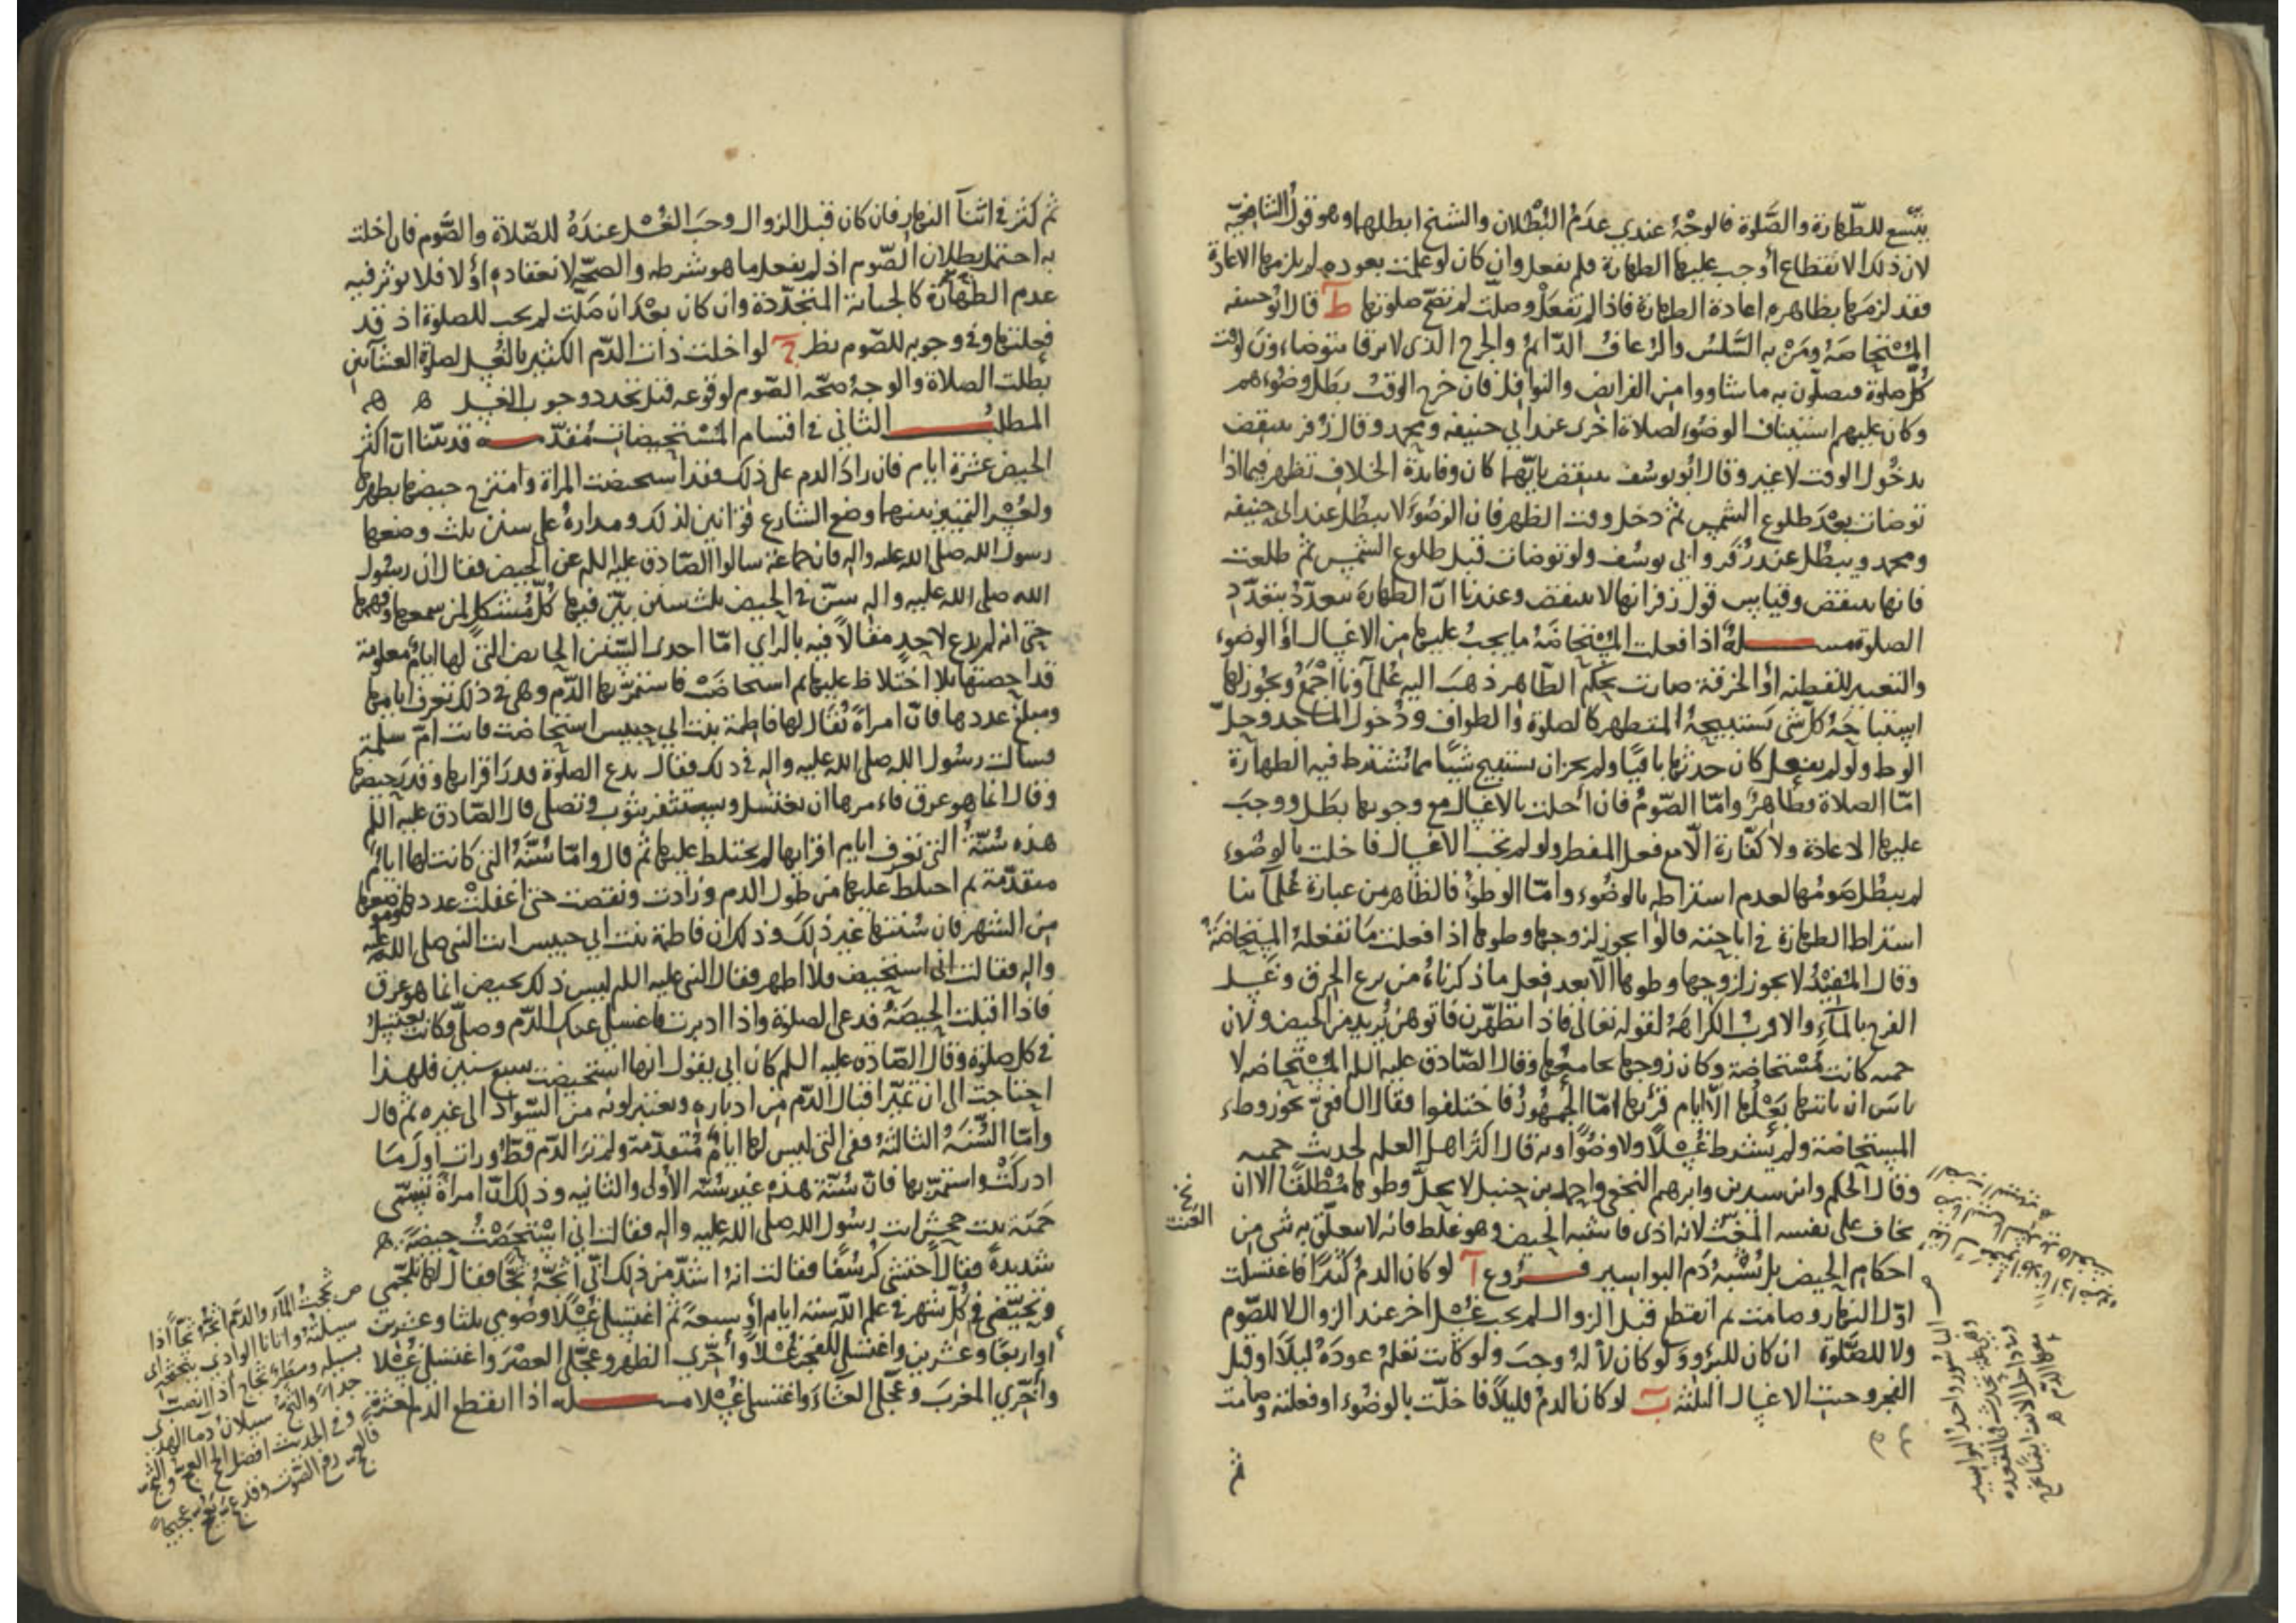 يتسع للطهارة والصلوة فالوجه عندي عدم البطلان والشيخ ابطلها وهو قول الشافعية
لان ذلك الانقطاع أوجب عليها الطهارة فلم يفعل وان كان لو علمت بعوده لم يلزمها الاعادة
فقد لزمها بظاهره اعادة الطهارة فاذا لم تفعل وصلت لم تصح صلوتها ط قال ابو حنيفه
المستحاضة ومن به السلس والرعاف الدائم والجرح الذي لا يرقا يتوضاءون لوقت
كل صلوة فيصلون به ما شاووا من الفرايض والنوافل فان خرج الوقت بطل وضوءهم
وكان عليهم استيناف الوضوء لصلاة اخرى عند ابي حنيفه ومحمد وقال زفر ينتقض
بدخول الوقت لا غير وقال ابو يوسف ينتقض بايهما كان وفايدة الخلاف تظهر فيما اذا
توضات بعد طلوع الشمس ثم دخل وقت الظهر فان الوضوء لا يبطل عند ابي حنيفه
ومحمد ويبطل عند زفر وابي يوسف ولو توضات قبل طلوع الشمس ثم طلعت
فانها ينتقض وقياس قول زفر انها لا ينتقض وعندنا ان الطهارة يتعدد بتعدد
الصلوة مسلة اذا فعلت المستحاضة ما يجب عليها من الاغسال او الوضوء
والتغيير للقطنه او الخرقة صارت بحكم الطاهر ذهب اليه علمآونا اجمع ويجوز لها
استباحة كل شي يستبيحه المتطهر كالصلوة والطواف ودخول المساجد وحل
الوطء ولو لم يفعل كان حدثها باقيا ولم يجز ان يستبيح شيا مما تشترط فيه الطهارة
اما الصلاة فظاهر واما الصوم فان أخلت بالاغسال مع وجوبها بطل ووجب
عليها الاعادة ولا كفارة الا مع فعل المفطر ولو لم تجب الاغسال فاخلت بالوضوء
لم يبطل صومها لعدم اشتراطه بالوضوء واما الوطؤ فالظاهر من عبارة علمآينا
اشتراط الطهارة في اباحته قالوا يجوز لزوجها وطوها اذا فعلت ما تفعله المستحاضة
وقال المفيد لا يجوز لزوجها وطوها الا بعد فعل ما ذكرناه من نزع الخرق وغسل
الفرج بالمآء والاقرب الكراهة لقوله تعالى فاذا تطهرن فاتوهن يريد من الحيض ولان
حمنه كانت مستحاضة وكان زوجها يجامعها وقال الصادق عليه السلم المستحاضه لا
باس ان ياتيها بعلها الا ايام قرئها اما الجمهور فاختلفوا فقال الشافعي يجوز وطء
المستحاضة ولم يشترط غسلا ولا وضوءا وبه قال اكثر اهل العلم لحديث حمنه
وقال الحكم وابن سيرين وابرهيم النخعي واحمد بن حنبل لا يحل وطوها مطلقا الا ان
يخاف على نفسه العنت لانه اذى فاشبه الحيض وهو غلط فانه لا يتعلق به شي من
احكام الحيض بل يشبه دم البواسير فروع آ لو كان الدم كثيرا فاغتسلت
اول النهار وصامت ثم انقطع قبل الزوال لم يجب غسل اخر عند الزوال لا للصوم
ولا للصلوة ان كان للبرؤ ولو كان لا له وجب ولو كانت تعلم عوده ليلا او قبل
الفجر وجبت الاغسال الثلثة ب لو كان الدم قليلا فاخلت بالوضوء او فعلته وصامت
ثم
نخ
العنت
الناسور واحد البواسير
ثم كثر في اثنآ النهار فان كان قبل الزوال وجب الغسل عنده للصلاة والصوم فان اخلت
به احتمل بطلان الصوم اذ لم يفعل ما هو شرطه والصحة لانعقاده اولا فلا يوثر فيه
عدم الطهارة كالجنابة المتجددة وان كان بعد ان صلت لم يجب للصلوة اذ قد
فعلتها وفي وجوبه للصوم نظر ج لو اخلت ذات الدم الكثير بالغسل لصلوة العشآئين
بطلت الصلاة والوجه صحة الصوم لوقوعه قبل تجدد وجوب الغسل ه ه
المطلب الثاني في اقسام المستحيضات مقدمه قد بينا ان اكثر
الحيض عشرة ايام فان زاد الدم على ذلك فقد استحيضت المراة وامتزج حيضها بطهرها
ولعسر التمييز بينهما وضع الشارع قوانين لذلك ومداره على سنن ثلث وضعها
رسول الله صلى الله عليه واله فان جماعة سالوا الصادق عليه السلم عن الحيض فقال ان رسول
الله صلى الله عليه واله سن في الحيض ثلث سنن بين فيها كل مشكل لمن سمعها وفهمها
حتى انه لم يدع لاحد مقالا فيه بالراي اما احدى السنن الحايض التي لها ايام معلومة
قد احصتها بلا اختلاط عليها ثم استحاضت فاستمر بها الدم وهي في ذلك تعرف ايامها
ومبلغ عددها فان امراة يقال لها فاطمة بنت ابي حبيس استحاضت فاتت ام سلمة
فسالت رسول الله صلى الله عليه واله في ذلك فقال يدع الصلوة قدر اقرابها وقدر حيضها
وقال انما هو عرق فاءمرها ان يغتسل وتستثفر بثوب وتصلي قال الصادق عليه السلم
هذه سنة التي تعرف ايام اقرايها لم يختلط عليها ثم قال واما سنة التي كانت لها ايام
متقدمة ثم اختلط عليها من طول الدم وزادت ونقصت حتى اغفلت عددها وموضعها
من الشهر فان سنتها غير ذلك وذلك ان فاطمة بنت ابي حبيس اتت النبي صلى الله عليه
واله فقالت اني استحيض فلا اطهر فقال النبي عليه السلم ليس ذلك بحيض انما هو عرق
فاذا اقبلت الحيضة فدعي الصلوة واذا ادبرت فاغسلي عنك الدم وصلي وكانت تغتسل
في كل صلوة وقال الصادق عليه السلم كان ابي يقول انها استحيضت سبع سنين فلهذا
احتاجت الى ان تعرف اقبال الدم من ادباره وتغير لونه من السواد الى غيره ثم قال
واما السنة الثالثة ففي التي ليس لها ايام متقدمة ولم تر الدم قط ورات اول ما
ادركت واستمر بها فان سنة هذه غير سنة الاولى والثانيه وذلك ان امراة تسمى
حمنة بنت جحش اتت رسول الله صلى الله عليه واله فقالت اني استحضت حيضة
شديدة فقال احتشي كرسفا فقالت انه اشد من ذلك اني اثجه ثجا فقال لها تلجمي
وتحيضي في كل شهر في علم الله ستة ايام او سبعة ثم اغتسلي غسلا وصومي ثلثا وعشرين
او اربعا وعشرين واغتسلي للفجر غسلا وأخري الظهر وعجلي العصر واغتسلي غسلا
وأخري المغرب وعجلي العشاء واغتسلي غسلا مسله اذا انقطع الدم لعشرة
ص ثججت المآء والدم اثجه ثجا اذا
سيلته واتانا الوادي بثجيجه اي
بسيله ومطر ثجاج اذا انصب
جدا والثج سيلان دماء الهدي
وفي الحديث افضل الحج العج والثج
فالعج رفع الصوت وقد عج يعج عجيجا